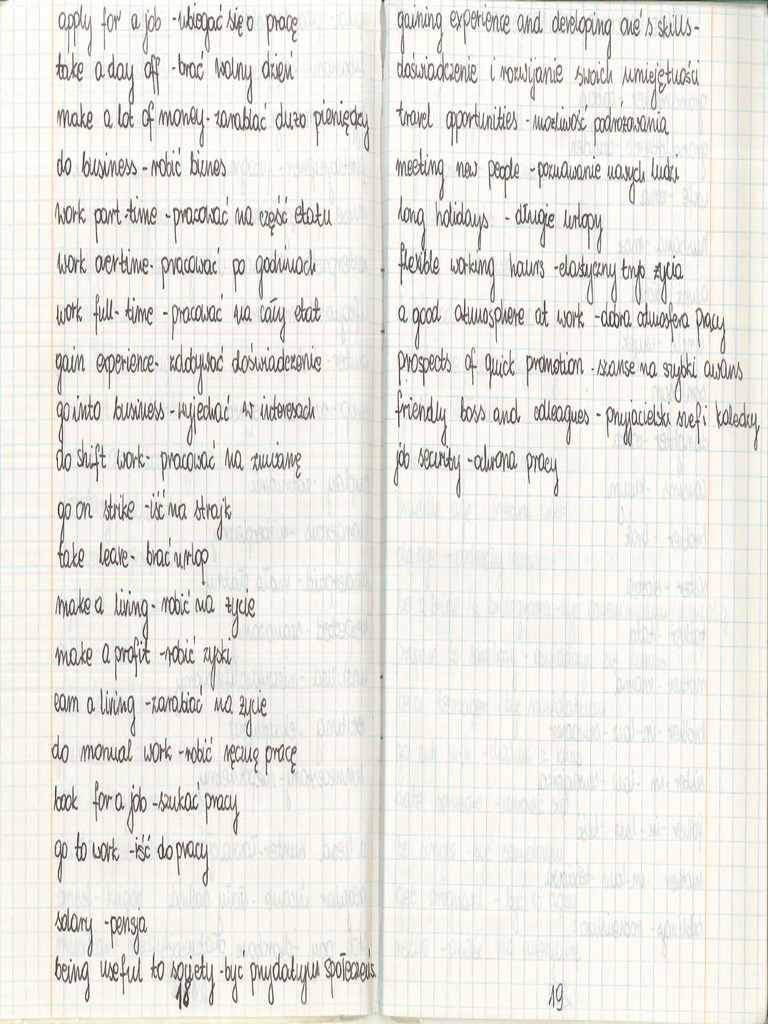 apply for a job - ubiegać się o pracę
take a day off - brać wolny dzień
make a lot of money - zarabiać dużo pieniędzy
do business - robić biznes
work part-time - pracować na część etatu
work overtime - pracować po godzinach
work full-time - pracować na cały etat
gain experience - zdobywać doświadczenie
go into business - wyjechać w interesach
do shift work - pracować na zmianę
go on strike - iść na strajk
take leave - brać urlop
make a living - robić na życie
make a profit - robić zyski
earn a living - zarabiać na życie
do manual work - robić ręczną pracę
book for a job - szukać pracy
go to work - iść do pracy
salary - pensja
being useful to sojety - być przydatnym społeczeńs.
18
gaining experience and developing one's skills -
doświadczenie i rozwijanie swoich umiejętności
travel opportunities - możliwość podróżowania
meeting new people - poznawanie nowych ludzi
long holidays - długie urlopy
flexible working hours - elastyczny tryb życia
a good atmosphere at work - dobra atmosfera pracy
prospects of quick promotion - szanse na szybki awans
friendly boss and colleagues - przyjacielski szef i koledzy
job security - ochrona pracy
19